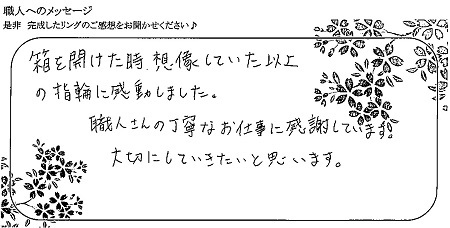 職人へのメッセージ
是非 完成したリングのご感想をお聞かせください♪
箱を開けた時、想像していた以上
の指輪に感動しました。
職人さんの丁寧なお仕事に感謝しています。
大切にしていきたいと思います。